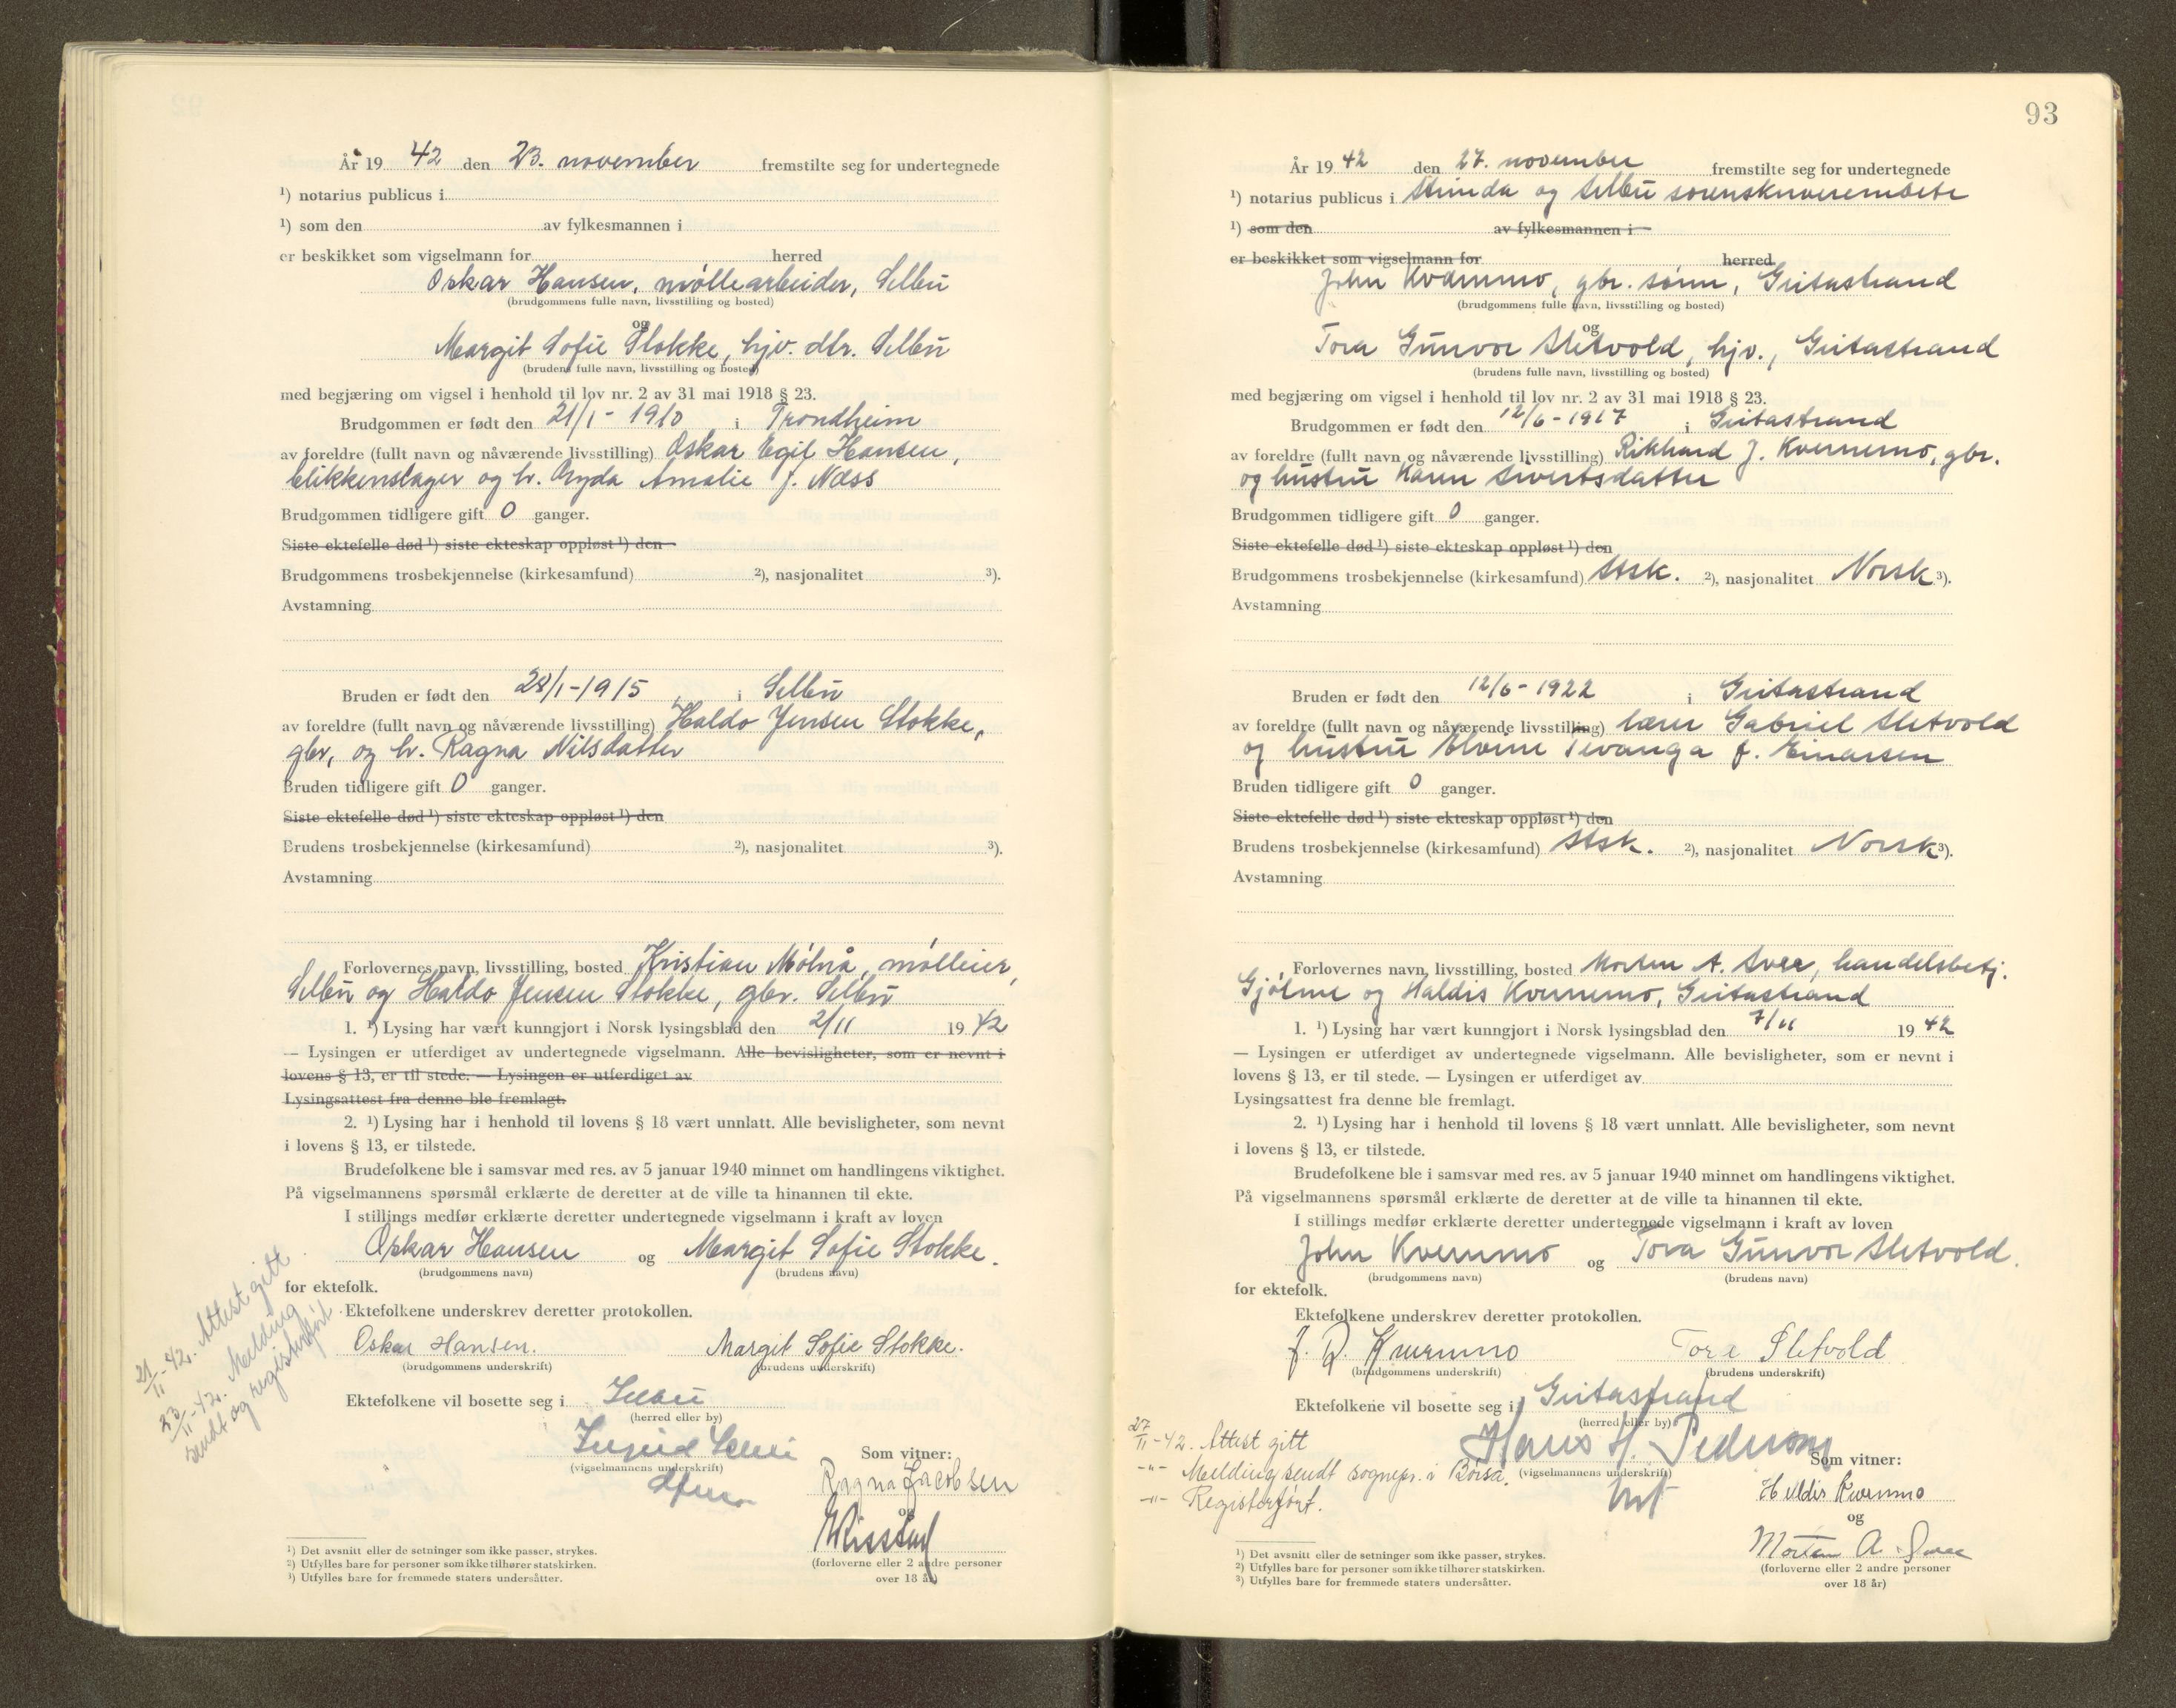 År 19 42 den 23. november fremstilte seg for undertegnede
¹) notarius publicus i
¹) som den av fylkesmannen i
er beskikket som vigselmann for herred
Oskar Hansen, møllearbeider, Selbu
(brudgommens fulle navn, livsstilling og bosted)
og
Margit Sofie Stokke, hjv. dtr. Selbu
(brudens fulle navn, livsstilling og bosted)
med begjæring om vigsel i henhold til lov nr. 2 av 31 mai 1918 § 23.
Brudgommen er født den 21/1 - 1910 i Trondheim
av foreldre (fullt navn og nåværende livsstilling) Oskar Egil Hansen,
blikkenslager og h. Amalie f. Næss
Brudgommen tidligere gift 0 ganger.
Siste ektefelle død ¹) siste ekteskap oppløst ¹) den
Brudgommens trosbekjennelse (kirkesamfund) ²), nasjonalitet ³).
Avstamning
Bruden er født den 28/1-1915 i Selbu
av foreldre (fullt navn og nåværende livsstilling) Haldo Jensen Stokke,
gbr, og h. Ragna Nilsdatter
Bruden tidligere gift 0 ganger.
Siste ektefelle død ¹) siste ekteskap oppløst ¹) den
Brudens trosbekjennelse (kirkesamfund) ²), nasjonalitet ³).
Avstamning
Forlovernes navn, livsstilling, bosted Kristian Mølnå, mølleier,
Selbu og Haldo Jensen Stokke, gbr. Selbu
1. ¹) Lysing har vært kunngjort i Norsk lysingsblad den 2/11 19 42
— Lysingen er utferdiget av undertegnede vigselmann. Alle bevisligheter, som er nevnt i
lovens § 13, er til stede. — Lysingen er utferdiget av
Lysingsattest fra denne ble fremlagt.
2. ¹) Lysing har i henhold til lovens § 18 vært unnlatt. Alle bevisligheter, som nevnt
i lovens § 13, er tilstede.
Brudefolkene ble i samsvar med res. av 5 januar 1940 minnet om handlingens viktighet.
På vigselmannens spørsmål erklærte de deretter at de ville ta hinannen til ekte.
I stillings medfør erklærte deretter undertegnede vigselmann i kraft av loven
Oskar Hansen og Margit Sofie Stokke.
(brudgommens navn) (brudens navn)
for ektefolk.
Ektefolkene underskrev deretter protokollen.
Oskar Hansen. Margit Sofie Stokke.
(brudgommens underskrift) (brudens underskrift)
Ektefolkene vil bosette seg i Selbu
(herred eller by)
(vigselmannens underskrift)
Som vitner:
Ragna Jacobsen
og
(forloverne eller 2 andre personer
over 18 år)
21/11-42. Attest gitt
23/11-42. Melding
sendt og registerført
¹) Det avsnitt eller de setninger som ikke passer, strykes.
²) Utfylles bare for personer som ikke tilhører statskirken.
³) Utfylles bare for fremmede staters undersåtter.
93
År 19 42 den 27. november fremstilte seg for undertegnede
¹) notarius publicus i Strinda og Selbu sorenskriverembete
¹) som den av fylkesmannen i
er beskikket som vigselmann for herred
John Kvernmo, gbr. sønn, Geitastrand
(brudgommens fulle navn, livsstilling og bosted)
og
Tora Gunvor Sletvold, hjv., Geitastrand
(brudens fulle navn, livsstilling og bosted)
med begjæring om vigsel i henhold til lov nr. 2 av 31 mai 1918 § 23.
Brudgommen er født den 12/6 - 1917 i Geitastrand
av foreldre (fullt navn og nåværende livsstilling) Rikhard J. Kvernmo, gbr.
og hustru Karen Sivertsdatter
Brudgommen tidligere gift 0 ganger.
Siste ektefelle død ¹) siste ekteskap oppløst ¹) den
Brudgommens trosbekjennelse (kirkesamfund) Stsk. ²), nasjonalitet Norsk ³).
Avstamning
Bruden er født den 12/6 - 1922 i Geitastrand
av foreldre (fullt navn og nåværende livsstilling) lærer Gabriel Sletvold
og hustru f. Einarsen
Bruden tidligere gift 0 ganger.
Siste ektefelle død ¹) siste ekteskap oppløst ¹) den
Brudens trosbekjennelse (kirkesamfund) Stsk. ²), nasjonalitet Norsk ³).
Avstamning
Forlovernes navn, livsstilling, bosted Morten A. handelsbetj.
Gjølme og Haldis Kvernmo, Geitastrand
1. ¹) Lysing har vært kunngjort i Norsk lysingsblad den 7/11 19 42
— Lysingen er utferdiget av undertegnede vigselmann. Alle bevisligheter, som er nevnt i
lovens § 13, er til stede. — Lysingen er utferdiget av
Lysingsattest fra denne ble fremlagt.
2. ¹) Lysing har i henhold til lovens § 18 vært unnlatt. Alle bevisligheter, som nevnt
i lovens § 13, er tilstede.
Brudefolkene ble i samsvar med res. av 5 januar 1940 minnet om handlingens viktighet.
På vigselmannens spørsmål erklærte de deretter at de ville ta hinannen til ekte.
I stillings medfør erklærte deretter undertegnede vigselmann i kraft av loven
John Kvernmo og Tora Gunvor Sletvold.
(brudgommens navn) (brudens navn)
for ektefolk.
Ektefolkene underskrev deretter protokollen.
J. R. Kvernmo Tora Sletvold
(brudgommens underskrift) (brudens underskrift)
Ektefolkene vil bosette seg i Geitastrand
(herred eller by)
Hans H. Pedersen
(vigselmannens underskrift)
Som vitner:
Haldis Kvernmo
og
Morten A.
(forloverne eller 2 andre personer
over 18 år)
27/11-42. Attest gitt
-"- Melding sendt sognepr. i Børsa.
-"- Registerført.
¹) Det avsnitt eller de setninger som ikke passer, strykes.
²) Utfylles bare for personer som ikke tilhører statskirken.
³) Utfylles bare for fremmede staters undersåtter.